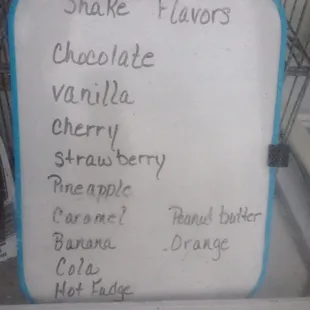 Shake Flavors
Chocolate
vanilla
cherry
strawberry
Pineapple
Caramel
Peanut butter
Banana
Orange
Cola
Hot Fudge